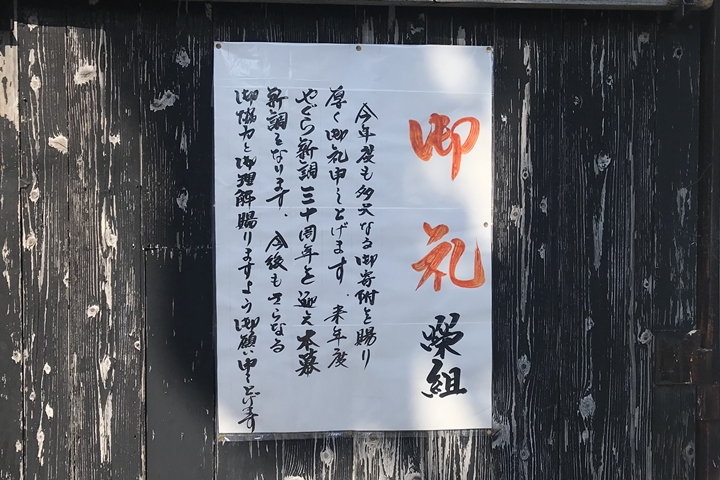 御礼 栄組
今年度も多大なる御寄附を賜り
厚く御礼申し上げます．来年度
やぐら新調三十周年を迎え本幕
新調となります．今後もさらなる
御協力と御理解賜りますよう御願い申し上げます